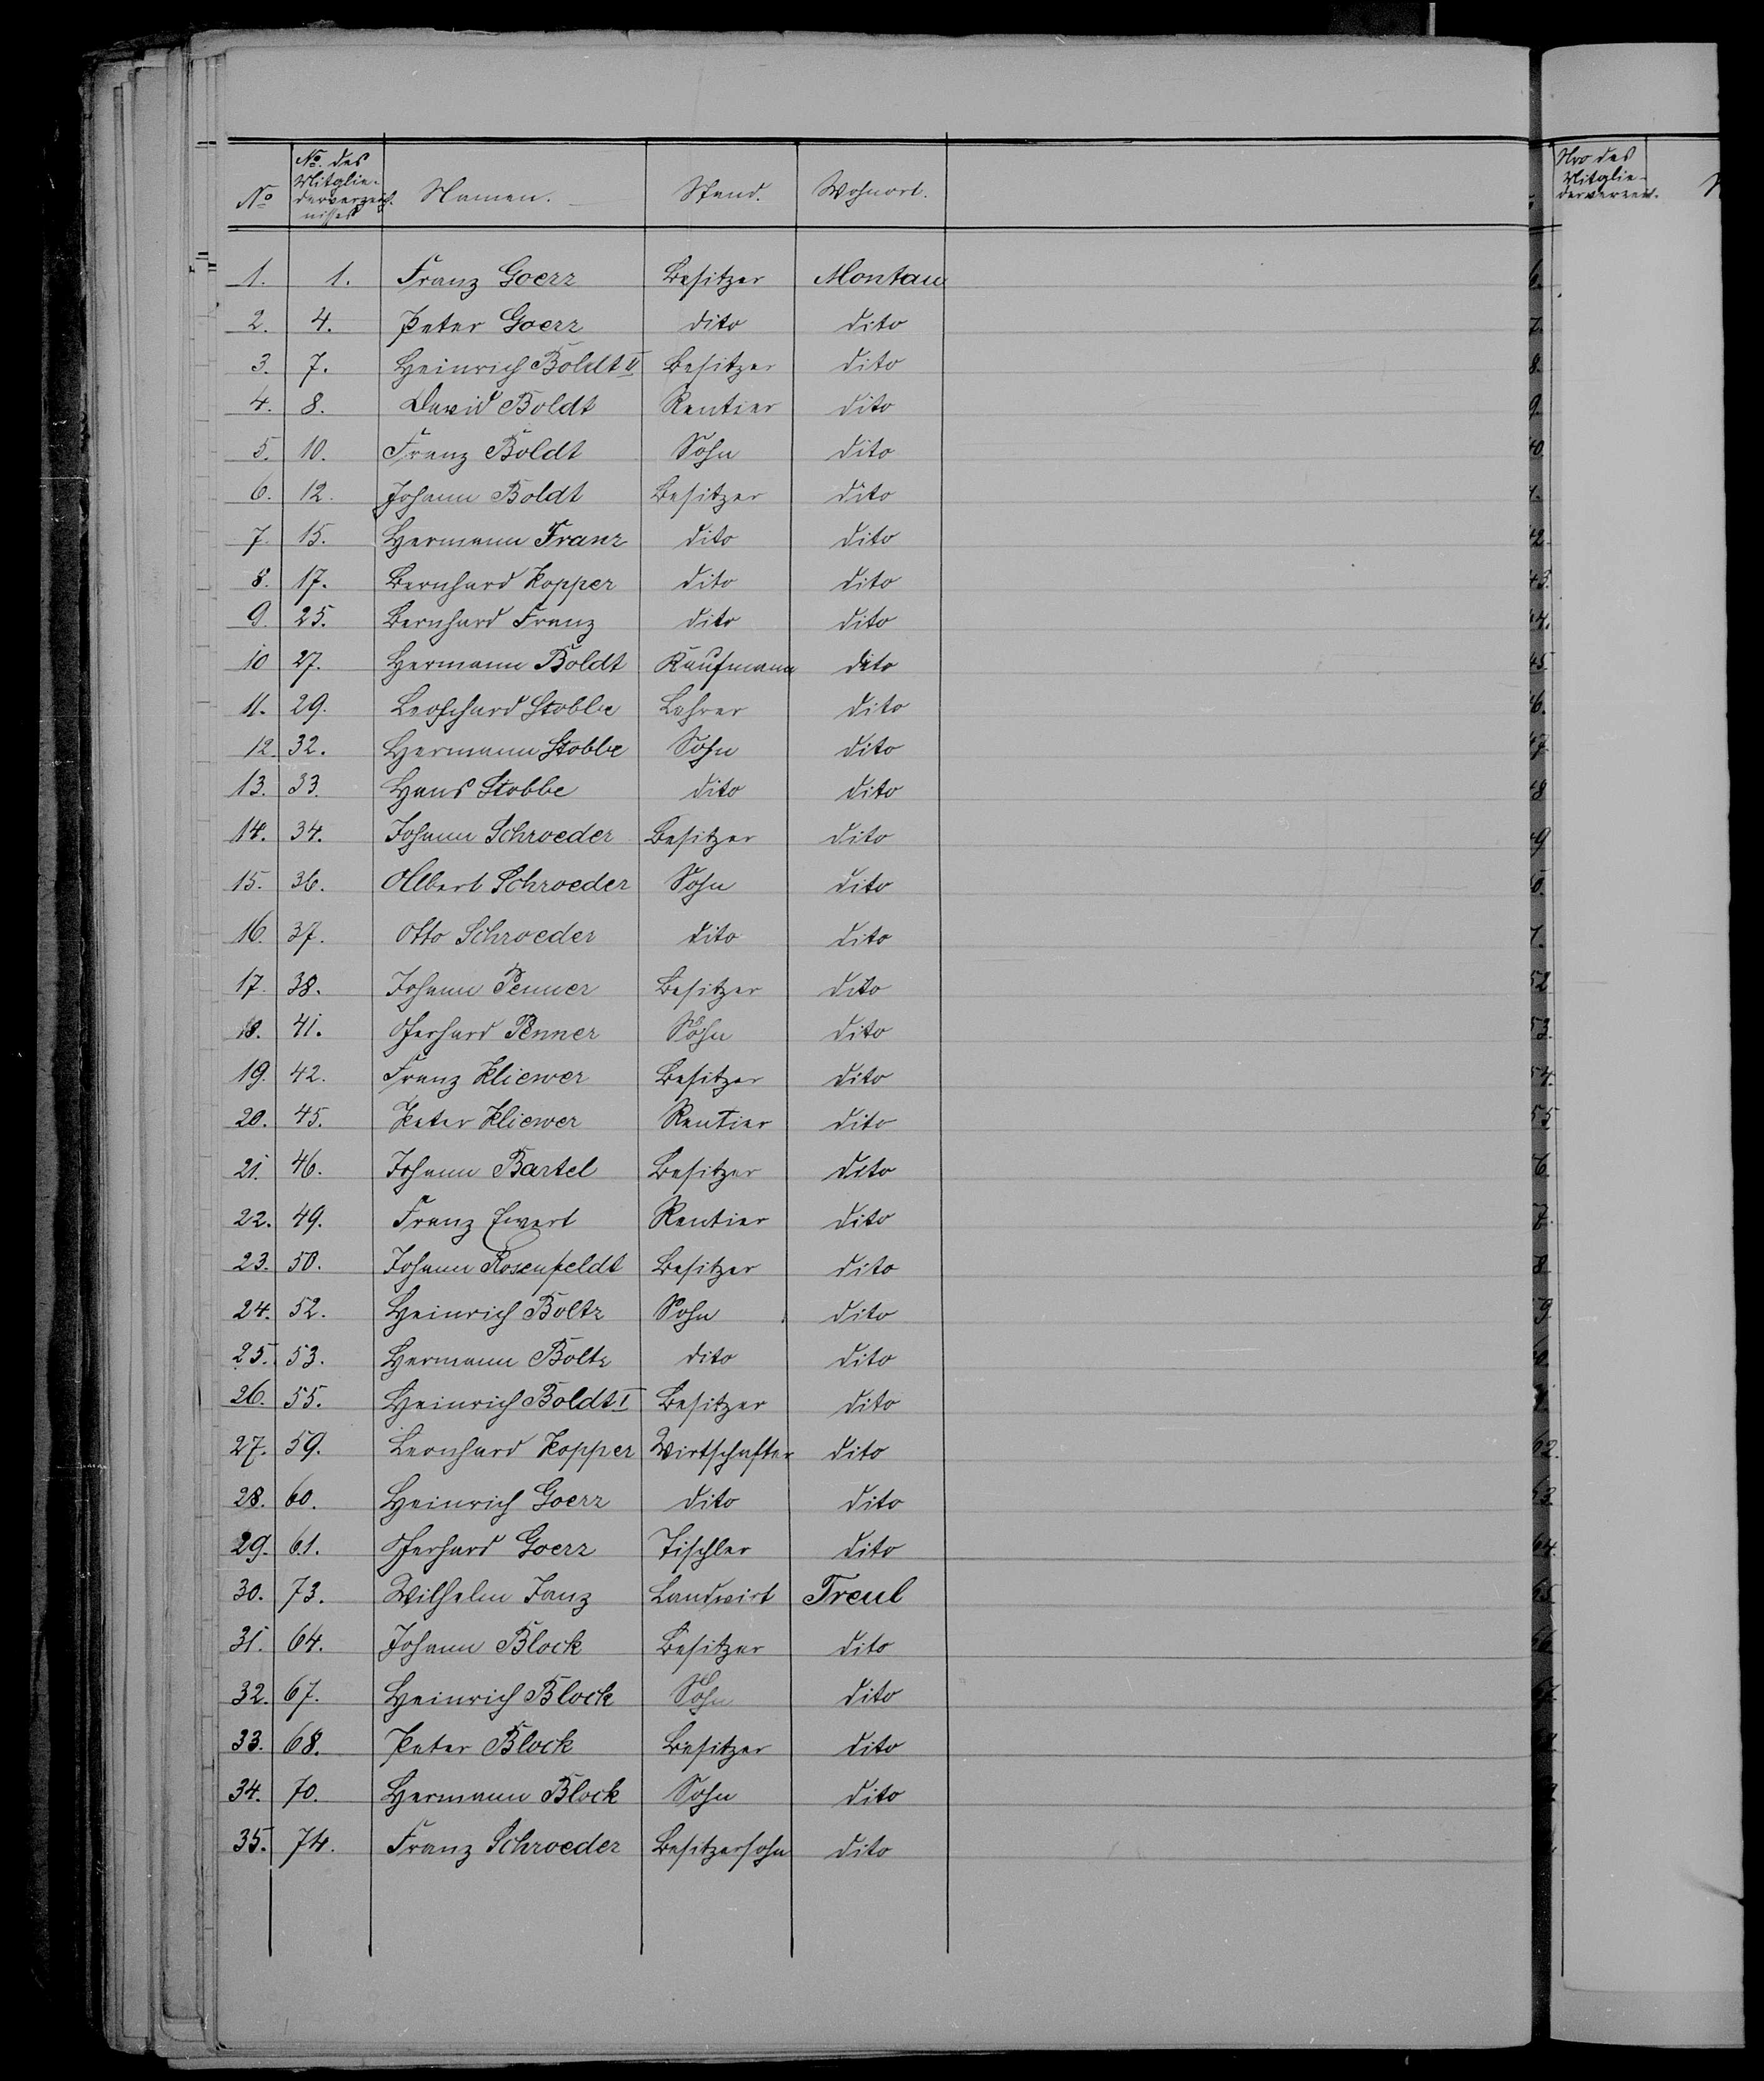 No
No. des Mitglie-
derverzeich-
nisses
Namen.
Stand.
Wohnort.
1. 1. Franz Goerz Besitzer Montau
2. 4. Peter Goerz dito dito
3. 7. Heinrich Boldt II Besitzer dito
4. 8. David Boldt Rentier dito
5. 10. Franz Boldt Sohn dito
6. 12. Johann Boldt Besitzer dito
7. 15. Hermann Franz dito dito
8. 17. Bernhard Kopper dito dito
9. 25. Bernhard Franz dito dito
10 27. Hermann Boldt Kaufmann dito
11. 29. Stobbe Lehrer dito
12. 32. Hermann Stobbe Sohn dito
13. 33. Hans Stobbe dito dito
14. 34. Johann Schroeder Besitzer dito
15. 36. Albert Schroeder Sohn dito
16. 37. Otto Schroeder dito dito
17. 38. Johann Penner Besitzer dito
18. 41. Gerhard Penner Sohn dito
19. 42. Franz Kliewer Besitzer dito
20. 45. Peter Kliewer Rentier dito
21. 46. Johann Bartel Besitzer dito
22. 49. Franz Ewert Rentier dito
23. 50. Johann Rosenfeldt Besitzer dito
24. 52. Heinrich Boltz Sohn dito
25. 53. Hermann Boltz dito dito
26. 55. Heinrich Boldt I Besitzer dito
27. 59. Leonhard Kopper Wirtschafter dito
28. 60. Heinrich Goerz dito dito
29. 61. Gerhard Goerz Tischler dito
30. 73. Wilhelm Janz Landwirt Treul
31. 64. Johann Block Besitzer dito
32. 67. Heinrich Block Sohn dito
33. 68. Peter Block Besitzer dito
34. 70. Hermann Block Sohn dito
35. 74. Franz Schroeder Besitzersohn dito
Nro des
Mitglie-